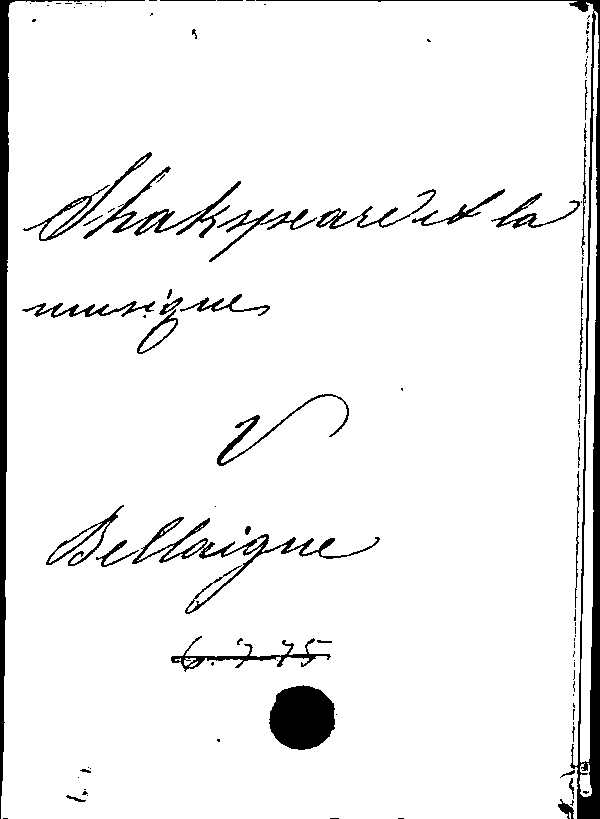 Shakspeare et la
musique
V
Bellaigue
6.7.75